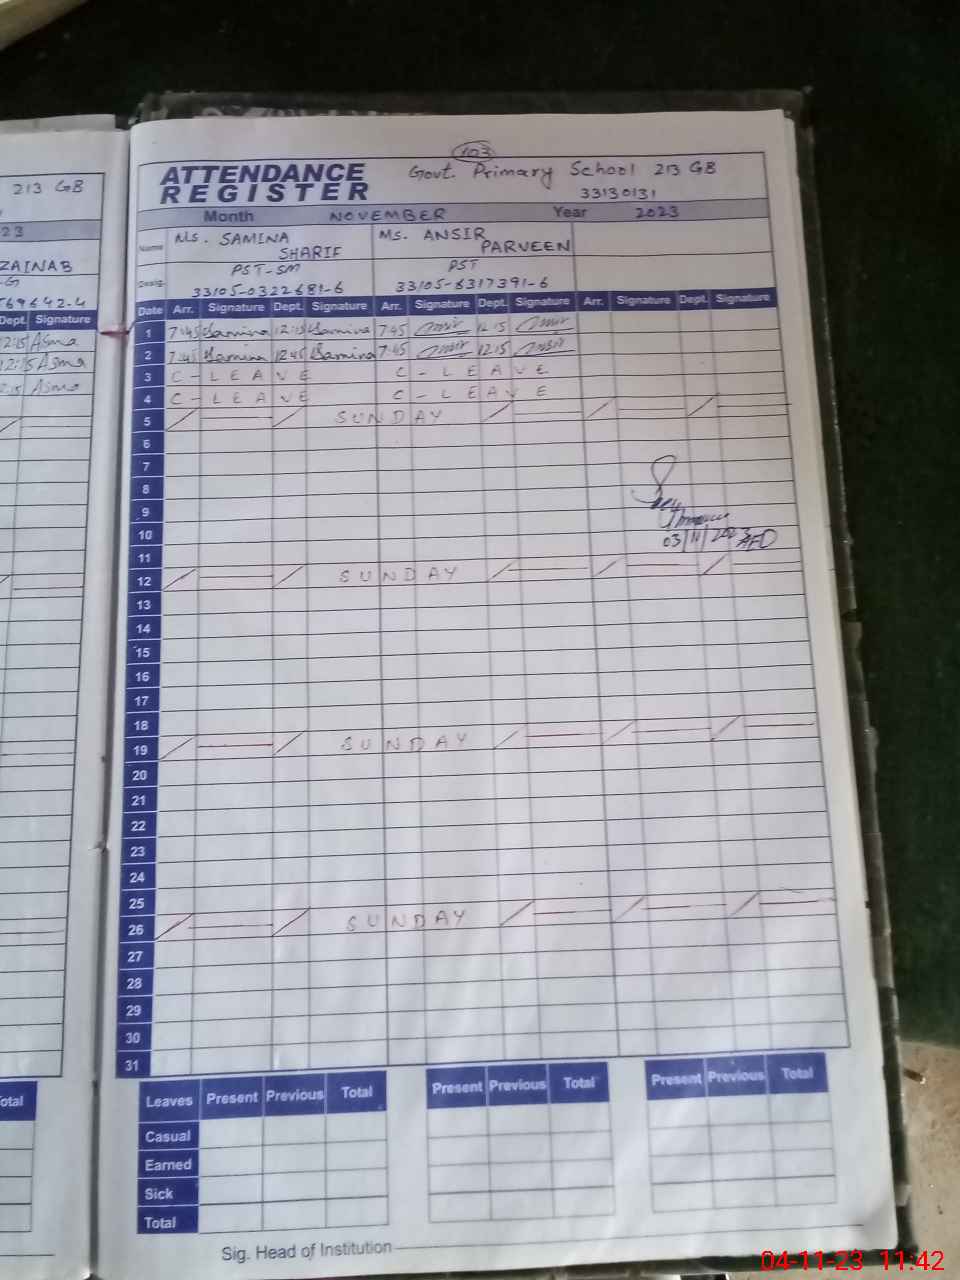 213 GB
23
ZAINAB
569642-4
Dept. Signature
12:15 Asma
12:15 Asma
2:15 Asma
otal
103
ATTENDANCE
REGISTER
Govt. Primary School 213 GB
33130131
Month NOVEMBER Year 2023
Name Ms. SAMINA SHARIF Ms. ANSIR PARVEEN
Desig. PST-SM PST
33105-0322681-6 33105-6317391-6
Date Arr. Signature Dept. Signature Arr. Signature Dept. Signature Arr. Signature Dept. Signature
1 7:45 Samina 12:15 Samina 7:45 Ansir 12:15 Ansir
2 7:45 Samina 12:45 Samina 7:45 Ansir 12:15 Ansir
3 C - LEAVE C - LEAVE
4 C - LEAVE C - LEAVE
5 SUNDAY
6
7
8
9
10
03/11/2023 AEO
11
12 SUNDAY
13
14
15
16
17
18
19 SUNDAY
20
21
22
23
24
25
26 SUNDAY
27
28
29
30
31
Leaves Present Previous Total Present Previous Total Present Previous Total
Casual
Earned
Sick
Total
Sig. Head of Institution
04-11-23 11:42